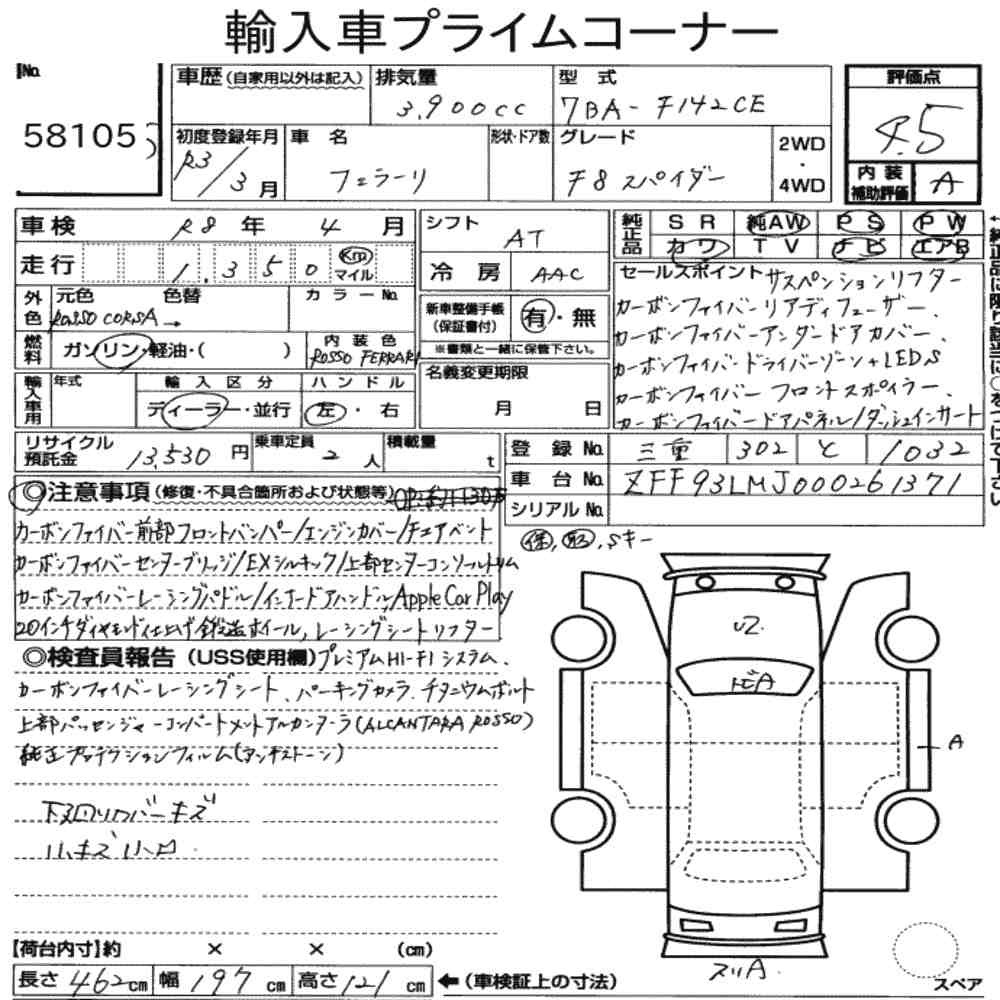 輸入車プライムコーナー
No.
58105
車歴 (自家用以外は記入)
排気量
3,900cc
型 式
7BA-F142CE
評価点
4.5
初度登録年月
R3/3月
車 名
フェラーリ
形状・ドア数
グレード
F8 スパイダー
2WD
・
4WD
内装補助評価
A
車検 R8年 4月
走行 1,350 Km マイル
シフト
AT
冷房 AAC
純正品 SR 純AW PS PW
カワ TV ナビ エアB
外色
元色 色替
ROSSO CORSA →
カラーNo.
燃料 ガソリン・軽油・( )
内装色
ROSSO FERRARI
新車整備手帳
(保証書付)
有・無
※書類と一緒に保管下さい。
セールスポイント サスペンションリフター
カーボンファイバーリアディフューザー、
カーボンファイバーアンダードアカバー、
カーボンファイバードライバーゾーン+LEDS
カーボンファイバー フロントスポイラー、
カーボンファイバードアパネル/ダッシュインサート
輸入車用
年式
輸入区分
ディーラー・並行
ハンドル
左・右
名義変更期限
月 日
リサイクル預託金 13,530円
乗車定員 2人
積載量 t
登録No. 三重 302 と 1032
車台No. ZFF93LMJ000261371
シリアルNo.
◎注意事項 (修復・不具合箇所および状態等)
カーボンファイバー前部フロントバンパー/エンジンカバー/チェアベント
カーボンファイバーセンターブリッジ/EXシルキック/上部センターコンソールトリム
カーボンファイバーレーシングパドル/インナードアハンドル, Apple Car Play
20インチダイヤモンド仕上げ鍛造ホイール, レーシングシートリフター
保, 取, Sキー
◎検査員報告 (USS使用欄) プレミアムHI-FIシステム、
カーボンファイバーレーシングシート、パーキングカメラ、チタニウムボルト
上部パッセンジャーコンパートメントアルカンターラ(ALCANTARA ROSSO)
純正プロテクションフィルム(アンチストーン)
下回りカバーキズ
小キズ小凹
U2
トビA
A
スリA
スペア
【荷台内寸】約 × × (cm)
長さ 462cm 幅 197cm 高さ 121cm ←(車検証上の寸法)